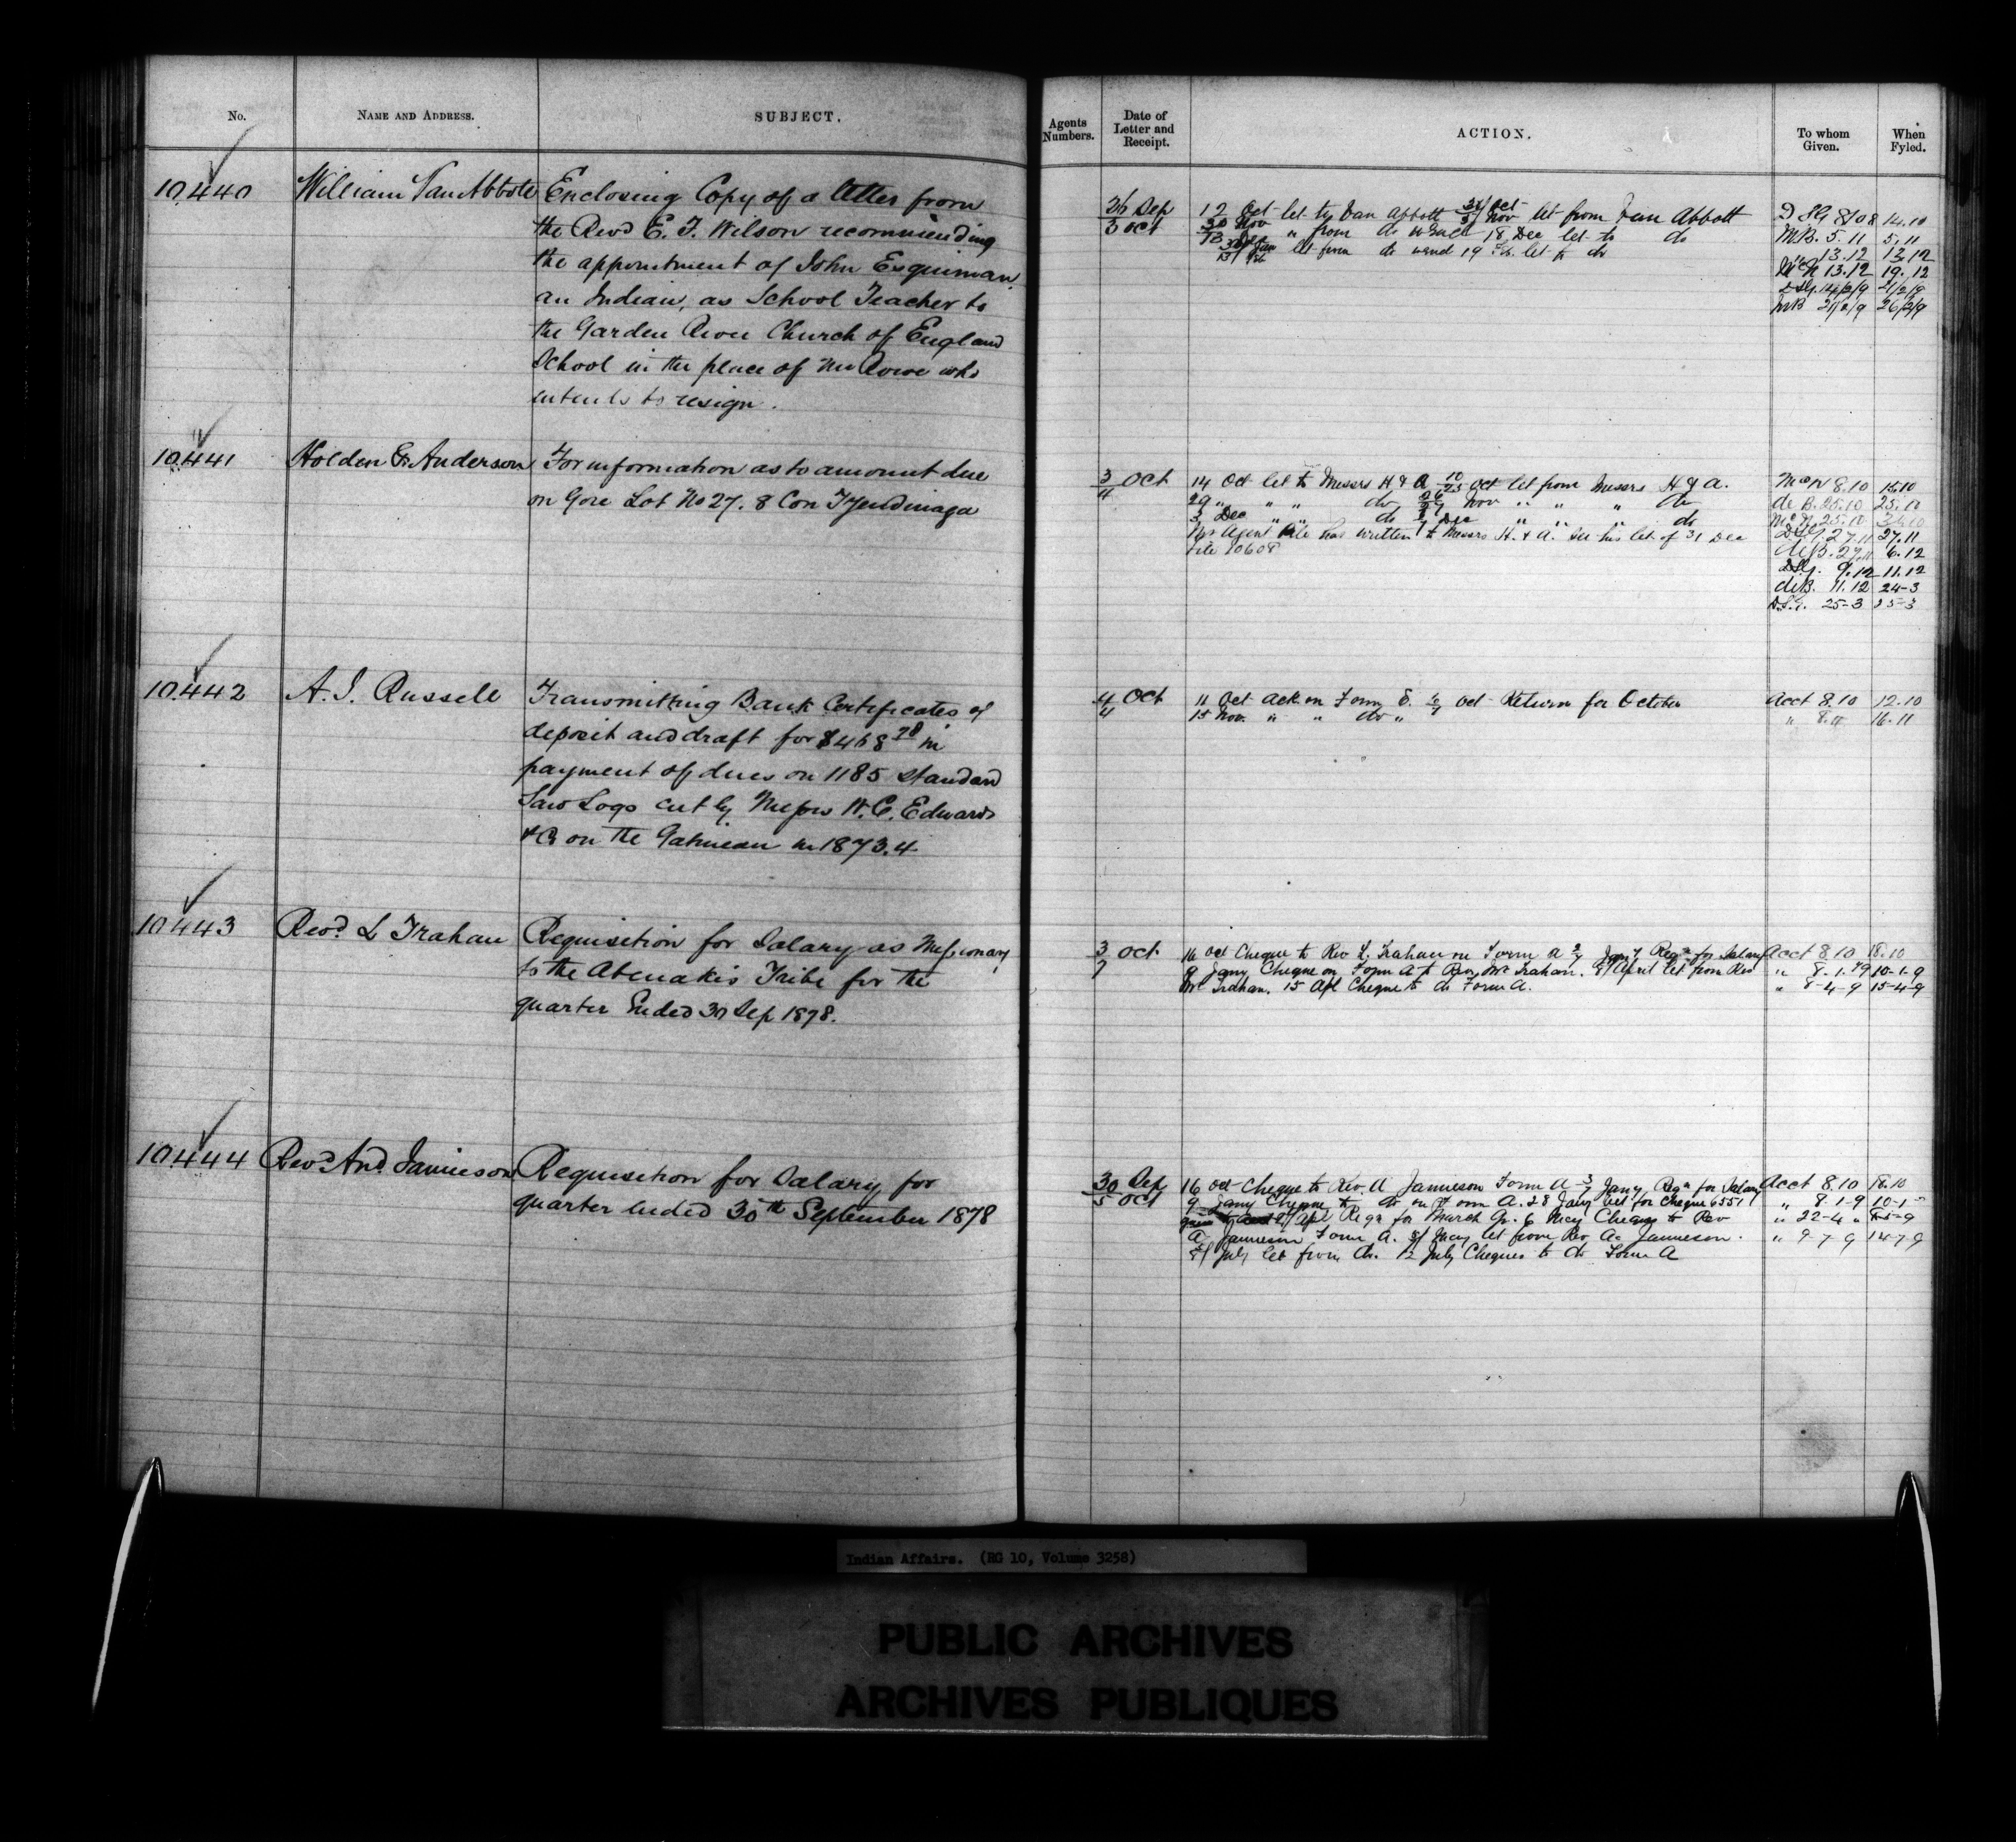 No.
NAME AND ADDRESS.
SUBJECT.
10.440
William Van Abbott
Enclosing Copy of a letter from
the Revd E. F. Wilson recommending
the appointment of John Esquiman
an Indian, as School Teacher to
the Garden River Church of England
School in the place of Mr Rowe who
intends to resign.
10.441
Holden & Anderson
For information as to amount due
on Gore Lot No 27. 8 Con Tyendinaga
10.442
A. J. Russell
Transmitting Bank Certificates of
deposit and draft for $468 78 in
payment of dues on 1185 standard
Saw Logs cut by Messrs W. C. Edwards
& Co on the Gatineau in 1873.4
10.443
Revd L Trahan
Requisition for Salary as Missionary
to the Abenakis Tribe for the
quarter Ended 30 Sep 1878.
10.444
Revd And. Jamieson
Requisition for Salary for
quarter ended 30th September 1878
Agents Numbers.
Date of Letter and Receipt.
ACTION.
To whom Given.
When Fyled.
26 Sep
3 Oct
12 Oct let to Van Abbott 31 Oct 5 Nov let from Van Abbott
30 Nov " from do 18 Dec let to do
let from do 19 Feb. let to do
14.10
M B. 5.11 5.11
13.12 13.12
McN 13.12 19.12
21/2/9
MB 21/2/9 26/2/9
3/4 Oct
14 Oct let to Messrs H & A Oct let from Messrs H & A.
29 " " " do Nov " " " do
3 Dec " " do Dec " " " do
Agent has written to Messrs H. & A. See his let of 31 Dec
File 10608
McN 8.10 15.10
de B. 25.10 25.10
McN. 25.10
27.11 27.11
de B. 27.11 6.12
9.12 11.12
de B. 11.12 24-3
D.S.G. 25-3 25-3
4/4 Oct
11 Oct Ack on Form E. Oct Return for October
15 Nov. " " do "
Acct 8.10 12.10
" 8.11 16.11
3/7 Oct
16 Oct Cheque to Rev L. Trahan on Form A 2/7 Jany Reqn for Salary
9 Jany Cheque on Form A to Rev Mr Trahan. 8/ April let from Rev
Mr Trahan. 15 Apl Cheque to do Form A.
Acct 8.10 18.10
" 8-1-79 10-1-9
" 8-4-9 15-4-9
30 Sep
5 Oct
16 Oct Cheque to Rev. A Jamieson Form A 3/7 Jany Reqn for Salary
9 Jany Cheque to do on Form A. 28 Jany let for Cheque 6551
Apl Reqn for March Qr. 6 May Cheque to Rev
A. Jamieson Form A. May let from Rev A. Jamieson.
July let from do. 12 July Cheques to do Form A
Acct 8.10 18.10
" 8-1-9 10-1-
" 22-4 "
" 9-7-9 14-7-9
Indian Affairs. (RG 10, Volume 3258)
PUBLIC ARCHIVES
ARCHIVES PUBLIQUES